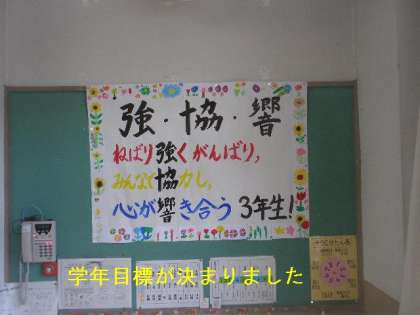 強・協・響
ねばり強くがんばり,
みんなで協力し,
心が響き合う 3年生!
学年目標が決まりました